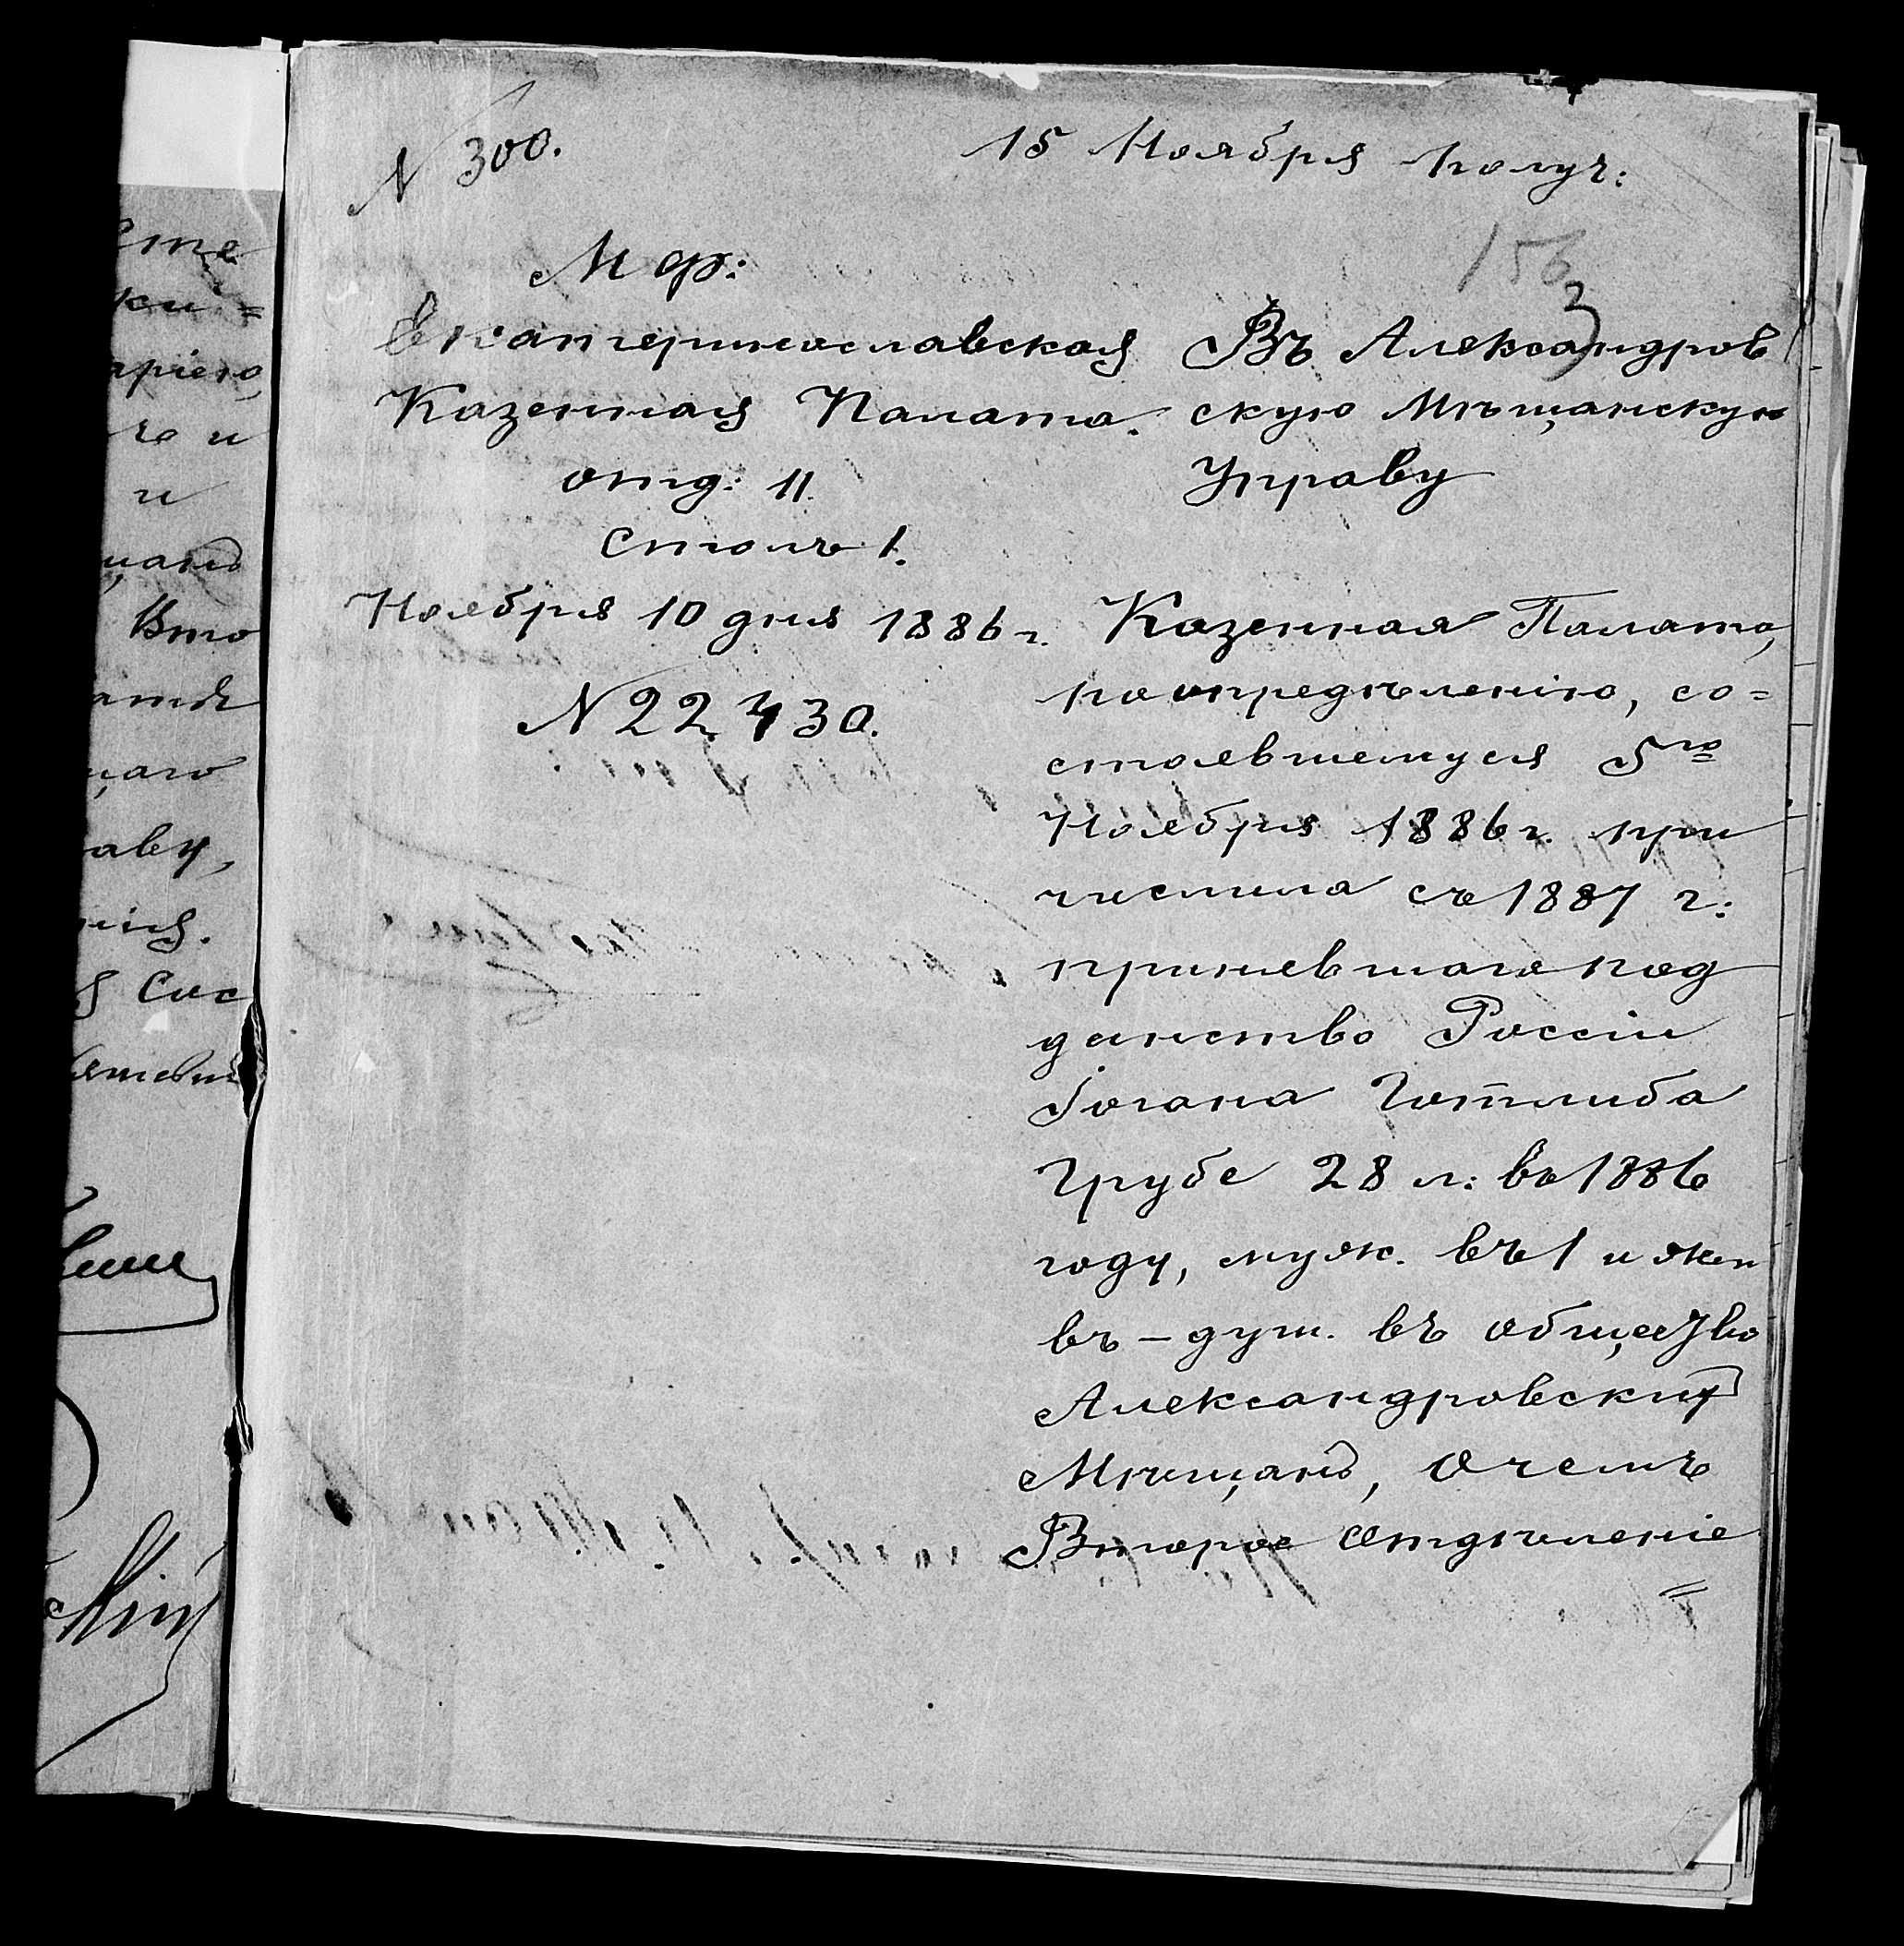 N 300.
15 Ноября получ:
156
3
М Ф:
Екатеринославская
Казенная Палата.
отд: II.
Столъ 1.
Ноября 10 дня 1886 г.
N 22430.
Въ Александров
скую Мѣщанскую
Управу
Казенная Палата,
по опредѣленію, со=
стоявшемуся 5го
Ноября 1886 г. при
числила съ 1887 г:
принявшаго под
данство Россіи
Іогана Готлиба
Грубе 28 л: въ 1886
году, муж. въ 1 и жен
въ – душ. въ общество
Александровскихъ
Мѣщанъ, О чемъ
Второе Отдѣленіе
=